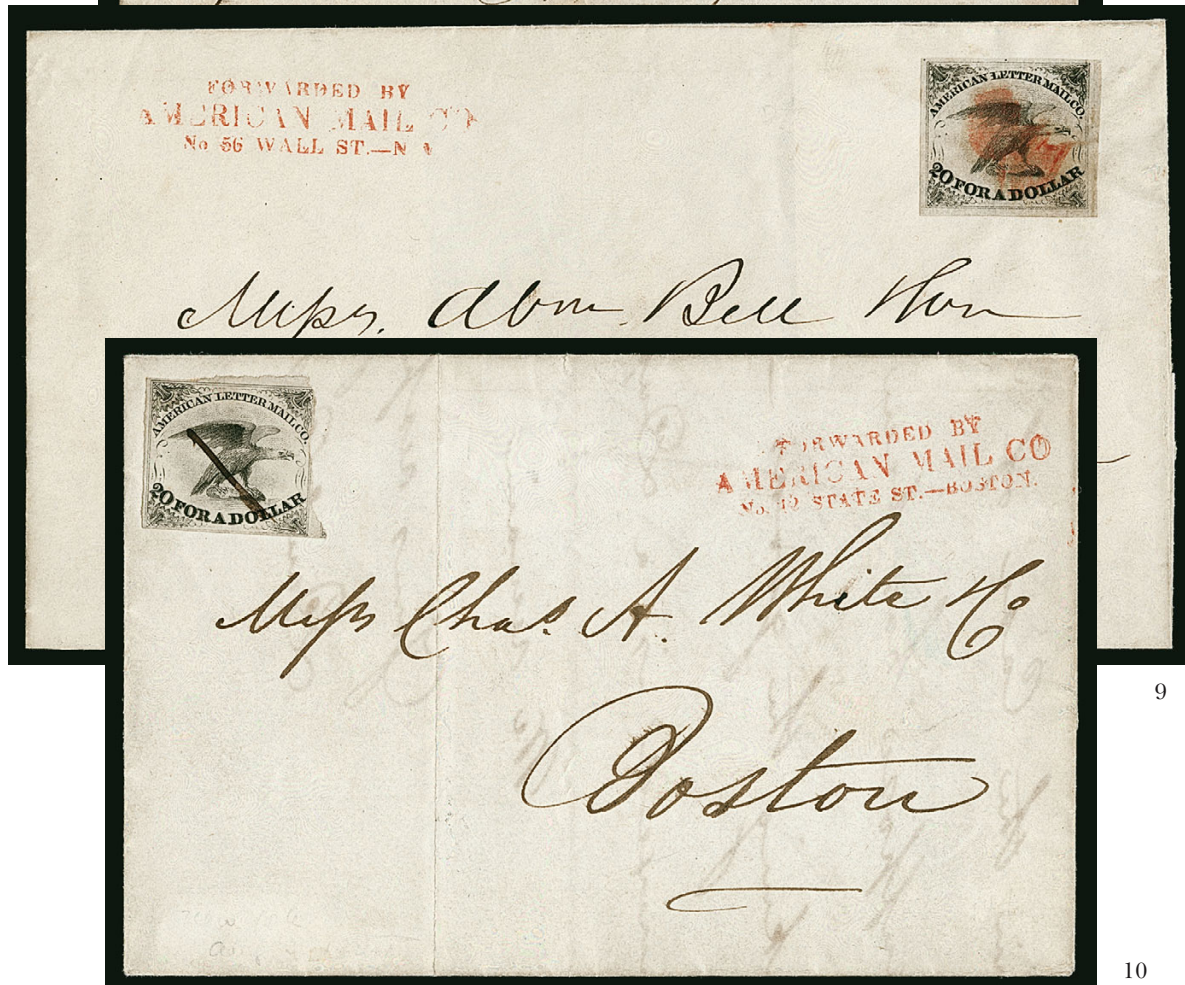 FORWARDED BY
AMERICAN MAIL CO
No 56 WALL ST.—N Y
AMERICAN LETTER MAIL CO.
20 FOR A DOLLAR
Messrs. Abm Bell
AMERICAN LETTER MAIL CO.
20 FOR A DOLLAR
FORWARDED BY
AMERICAN MAIL CO
No. 12 STATE ST.—BOSTON.
Messrs Chas. A. White & Co
Boston
9
10